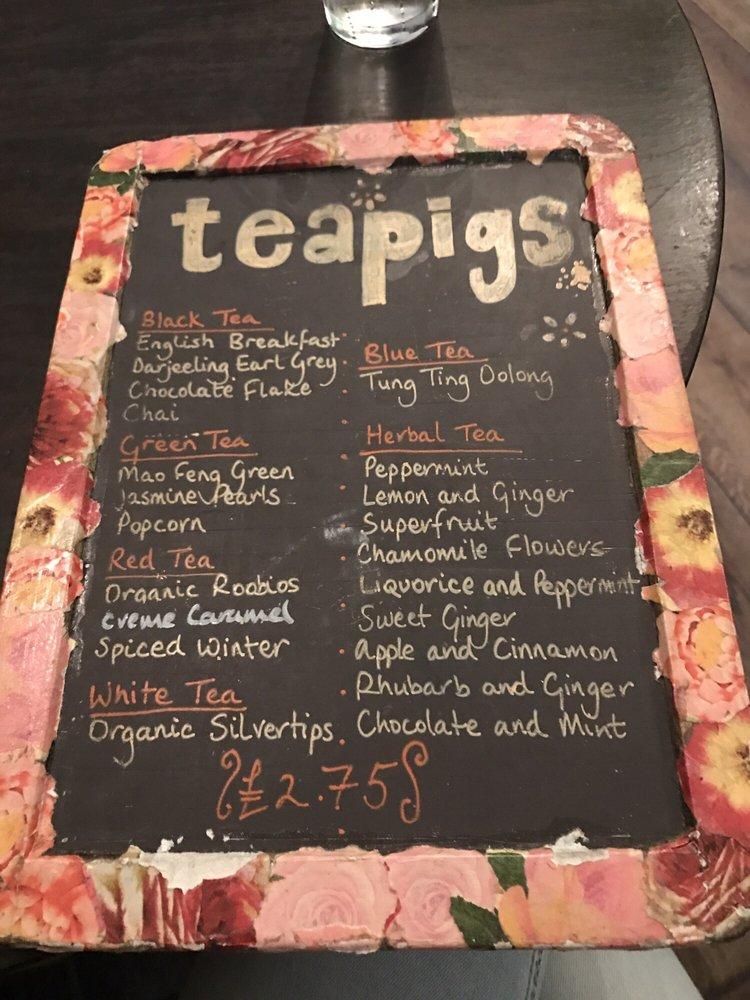 teapigs
Black Tea
English Breakfast
Darjeeling Earl Grey
Chocolate Flake
Chai
Green Tea
Mao Feng Green
Jasmine Pearls
Popcorn
Red Tea
Organic Roobios
Creme Caramel
Spiced Winter
White Tea
Organic Silvertips
Blue Tea
Tung Ting Oolong
Herbal Tea
Peppermint
Lemon and Ginger
Superfruit
Chamomile Flowers
Liquorice and Peppermint
Sweet Ginger
Apple and Cinnamon
Rhubarb and Ginger
Chocolate and Mint
£2.75